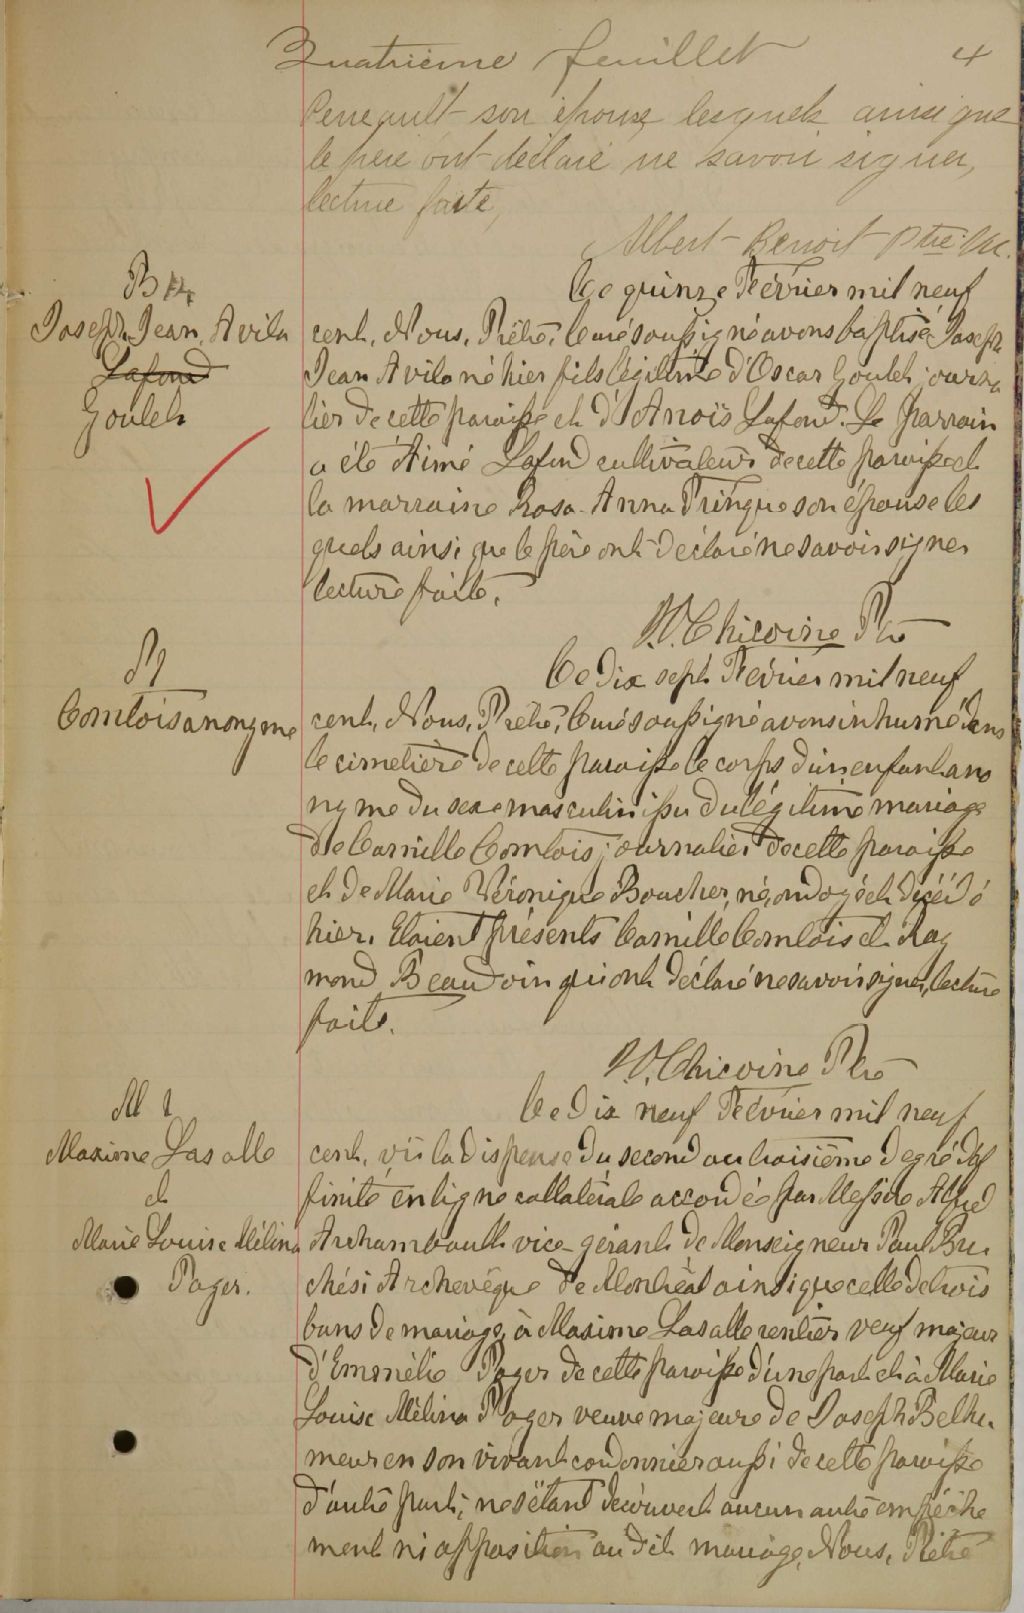 Quatrième feuillet 4
Perreault son épouse lesquels ainsi que
le père ont déclaré ne savoir signer,
lecture faite,
Albert Benoit Ptre Vic.
B 14
Joseph Jean Avila
Lafond
Goulet
Ce quinze Février mil neuf
cent, Nous, Prêtre, Curé soussigné avons baptisé Joseph
Jean Avila né hier fils légitime d'Oscar Goulet journa
lier de cette paroisse et d'Anaïs Lafond. Le parrain
a été Aimé Lafond cultivateur de cette paroisse et
la marraine Rosa-Anna Tringue son épouse les
quels ainsi que le père ont déclaré ne savoir signer
lecture faite.
Chicoine Ptre
S
Comtois anonyme
Ce dix sept Février mil neuf
cent, Nous, Prêtre, Curé soussigné avons inhumé dans
le cimetière de cette paroisse le corps d'un enfant ano
nyme du sexe masculin issu du légitime mariage
de Camille Comtois journalier de cette paroisse
et de Marie Véronique Boucher, né, ondoyé et décédé
hier. Etaient présents Camille Comtois et Ray
mond Beaudoin qui ont déclaré ne savoir signer, lecture
faite.
Chicoine Ptre
M 1
Maxime Lasalle
et
Marie Louise Mélina
Pager.
Ce dix neuf Février mil neuf
cent, vû la dispense du second au troisième degré d'af
finité en ligne collatérale accordée par Messire Alfred
Archambault vice-gérant de Monseigneur Paul Bru
chési Archevêque de Montréal ainsi que celle de trois
bans de mariage, à Maxime Lasalle rentier veuf majeur
d'Emmélie Pager de cette paroisse d'une part et à Marie
Louise Mélina Pager veuve majeure de Joseph Belhu
meur en son vivant cordonnier aussi de cette paroisse
d'autre part; ne s'étant découvert aucun autre empêche
ment ni opposition au dit mariage, Nous, Prêtre